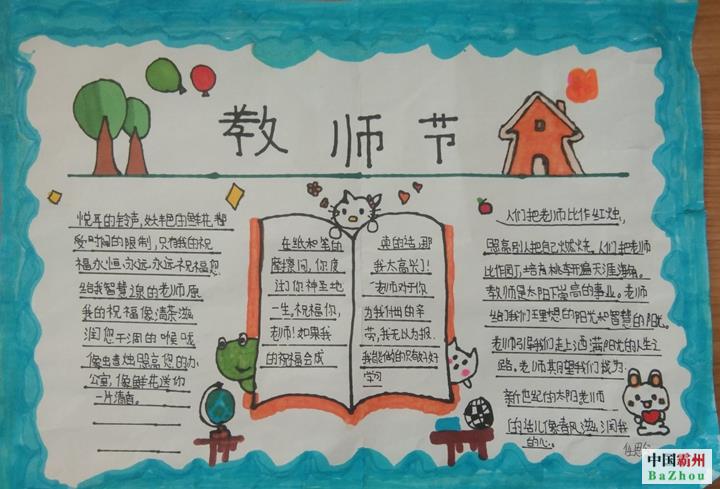 教师节
悦耳的铃声,妖艳的鲜花,都
受时间的限制,只有我的祝
福永恒,永远,永远祝福您,
给我智慧泉的老师原
我的祝福像清茶滋
润您干涸的喉咙
像虫青烛照亮您的办
公室,像鲜花送你
一片清香。
在纸和笔的
摩擦间,你度
过了你神圣地
一生。祝福你,
老师!如果我
的祝福会成
真的话,那
我太高兴了!
老师对于你
为我付出的辛
劳,我无以为报,
我能做的只有好好
学习
人们把老师比作红烛,
照亮别人把自己燃烧。人们把老师
比作园丁,培育桃李开遍天涯海角。
教师是太阳下崇高的事业。老师
给我们理想的阳光和智慧的阳光。
老师引导我们走上洒满阳光的人生之
路。老师期望我们成为
新世纪的太阳,老师
的话儿像春风滋润我
的心。
中国霸州
BaZhou